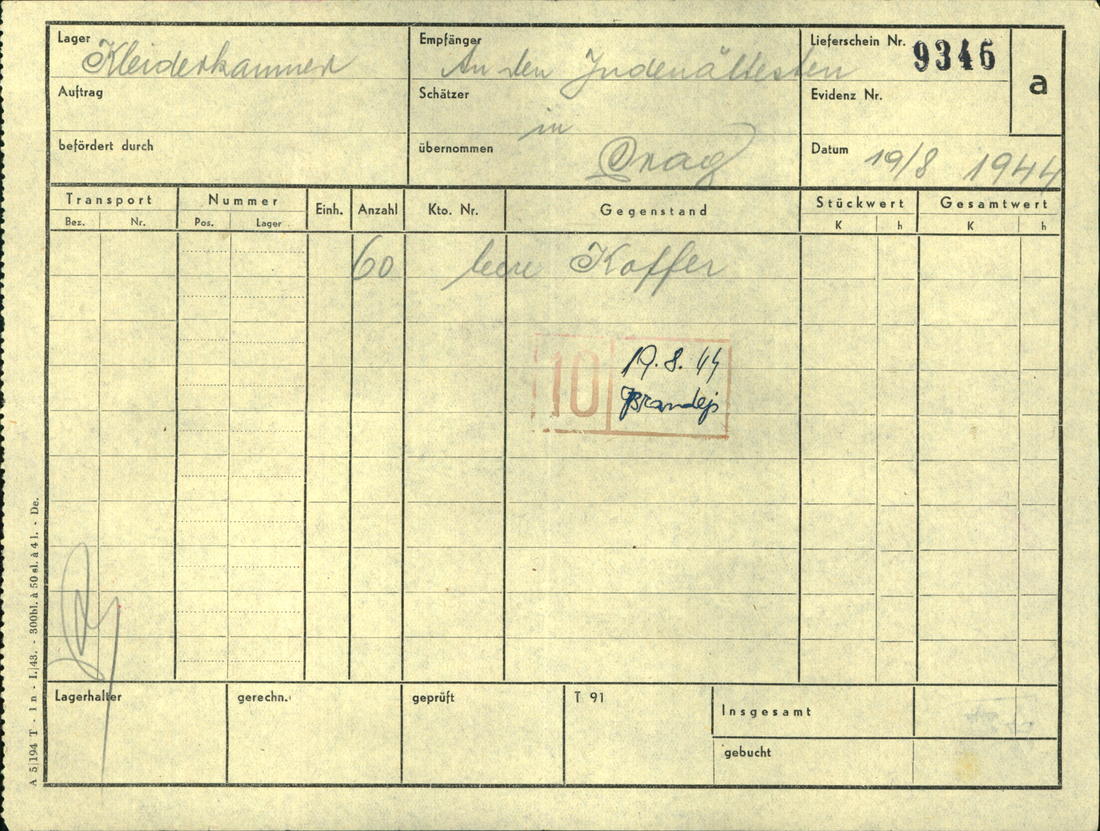 Lager
Kleiderkammer
Empfänger
An den Judenältesten
Lieferschein Nr. 9346
a
Auftrag
Schätzer
Evidenz Nr.
in
befördert durch
übernommen
Prag
Datum 19/8 1944
Transport
Nummer
Einh.
Anzahl
Kto. Nr.
Gegenstand
Stückwert
Gesamtwert
Bez.
Nr.
Pos.
Lager
K
h
K
h
60 leere Koffer
10
19. 8. 44
Brandejs
Lagerhalter
gerechn.
geprüft
T 91
Insgesamt
gebucht
A 5|194 T - 1 n - I.|43. - 300bl. à 50 sl. à 4 l. - De.